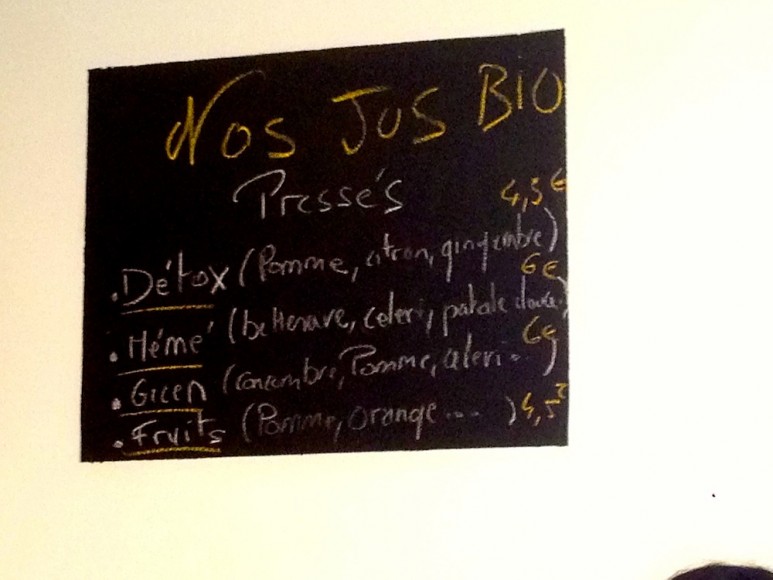 Nos Jus Bio
Pressés 4,5€
. Détox (Pomme, citron, gingembre)
6€
. Mémé (betterave, celeri, patate douce.)
6€
. Green (concombre, Pomme, celeri..)
. Fruits (Pomme, orange ... ) 4,5€